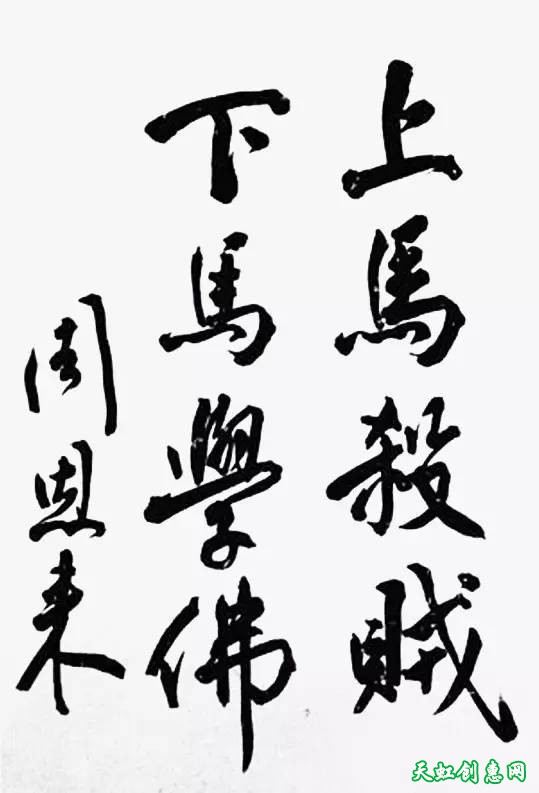 上馬殺賊
下馬學佛
周恩来
天虹创意网